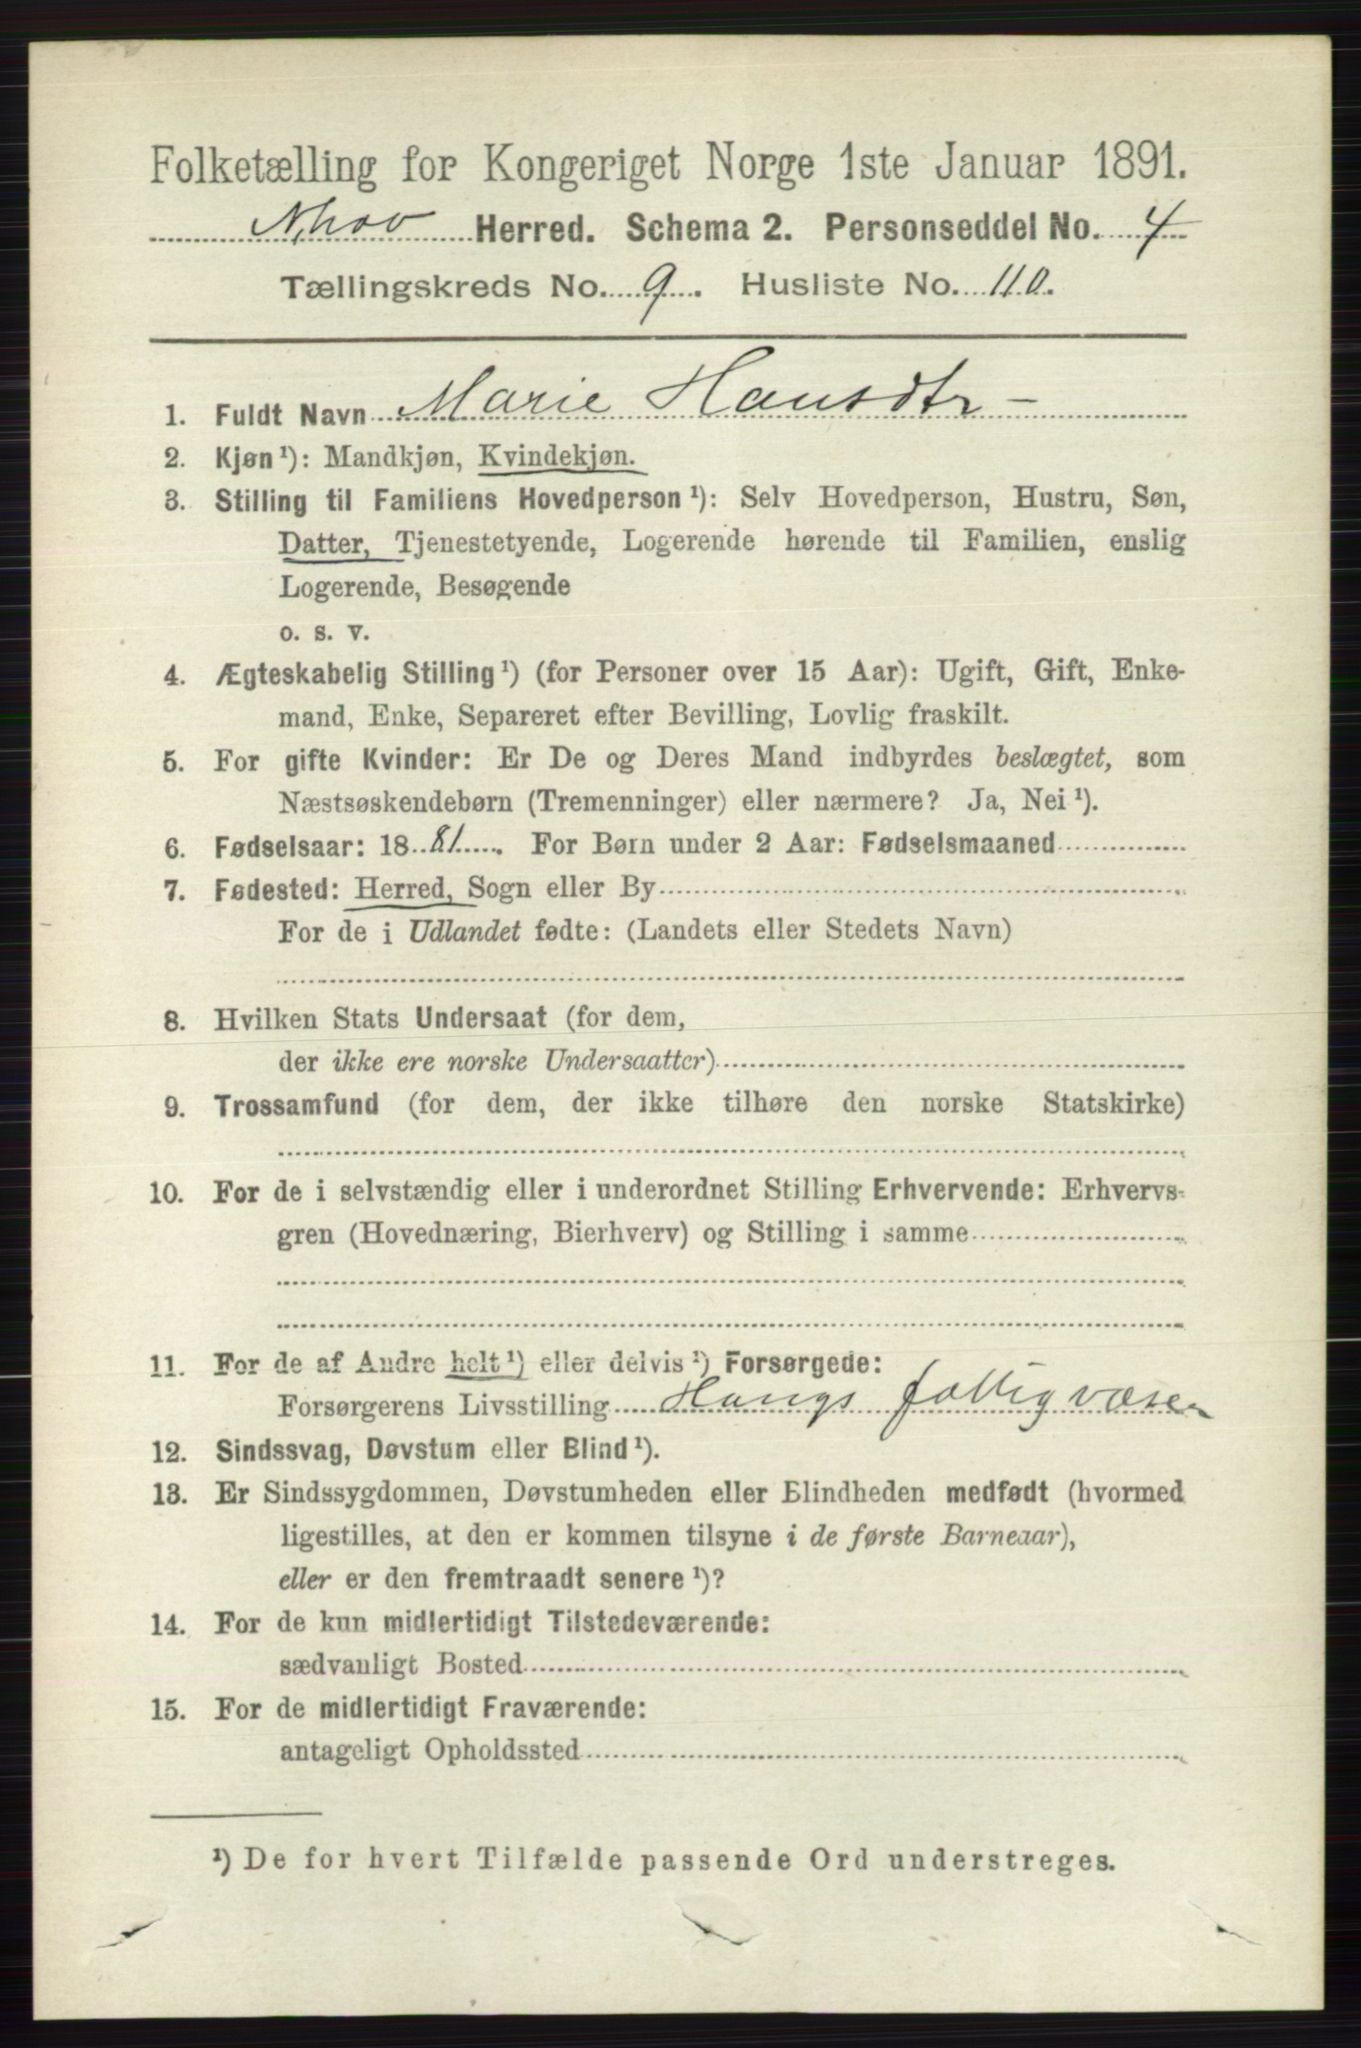 Folketælling for Kongeriget Norge 1ste Januar 1891.
Nhov Herred. Schema 2. Personseddel No. 4
Tællingskreds No. 9. Husliste No. 110.
1. Fuldt Navn Marie Hansdtr
2. Kjøn ¹): Mandkjøn, Kvindekjøn.
3. Stilling til Familiens Hovedperson ¹): Selv Hovedperson, Hustru, Søn,
Datter, Tjenestetyende, Logerende hørende til Familien, enslig
Logerende, Besøgende
o. s. v.
4. Ægteskabelig Stilling ¹) (for Personer over 15 Aar): Ugift, Gift, Enke-
mand, Enke, Separeret efter Bevilling, Lovlig fraskilt.
5. For gifte Kvinder: Er De og Deres Mand indbyrdes beslægtet, som
Næstsøskendebørn (Tremenninger) eller nærmere? Ja, Nei ¹).
6. Fødselsaar: 1881. For Børn under 2 Aar: Fødselsmaaned
7. Fødested: Herred, Sogn eller By
For de i Udlandet fødte: (Landets eller Stedets Navn)
8. Hvilken Stats Undersaat (for dem,
der ikke ere norske Undersaatter)
9. Trossamfund (for dem, der ikke tilhøre den norske Statskirke)
10. For de i selvstændig eller i underordnet Stilling Erhvervende: Erhvervs-
gren (Hovednæring, Bierhverv) og Stilling i samme
11. For de af Andre helt ¹) eller delvis ¹) Forsørgede:
Forsørgerens Livsstilling fattigvæsen
12. Sindssvag, Døvstum eller Blind ¹).
13. Er Sindssygdommen, Døvstumheden eller Blindheden medfødt (hvormed
ligestilles, at den er kommen tilsyne i de første Barneaar),
eller er den fremtraadt senere ¹)?
14. For de kun midlertidigt Tilstedeværende:
sædvanligt Bosted
15. For de midlertidigt Fraværende:
antageligt Opholdssted
¹) De for hvert Tilfælde passende Ord understreges.